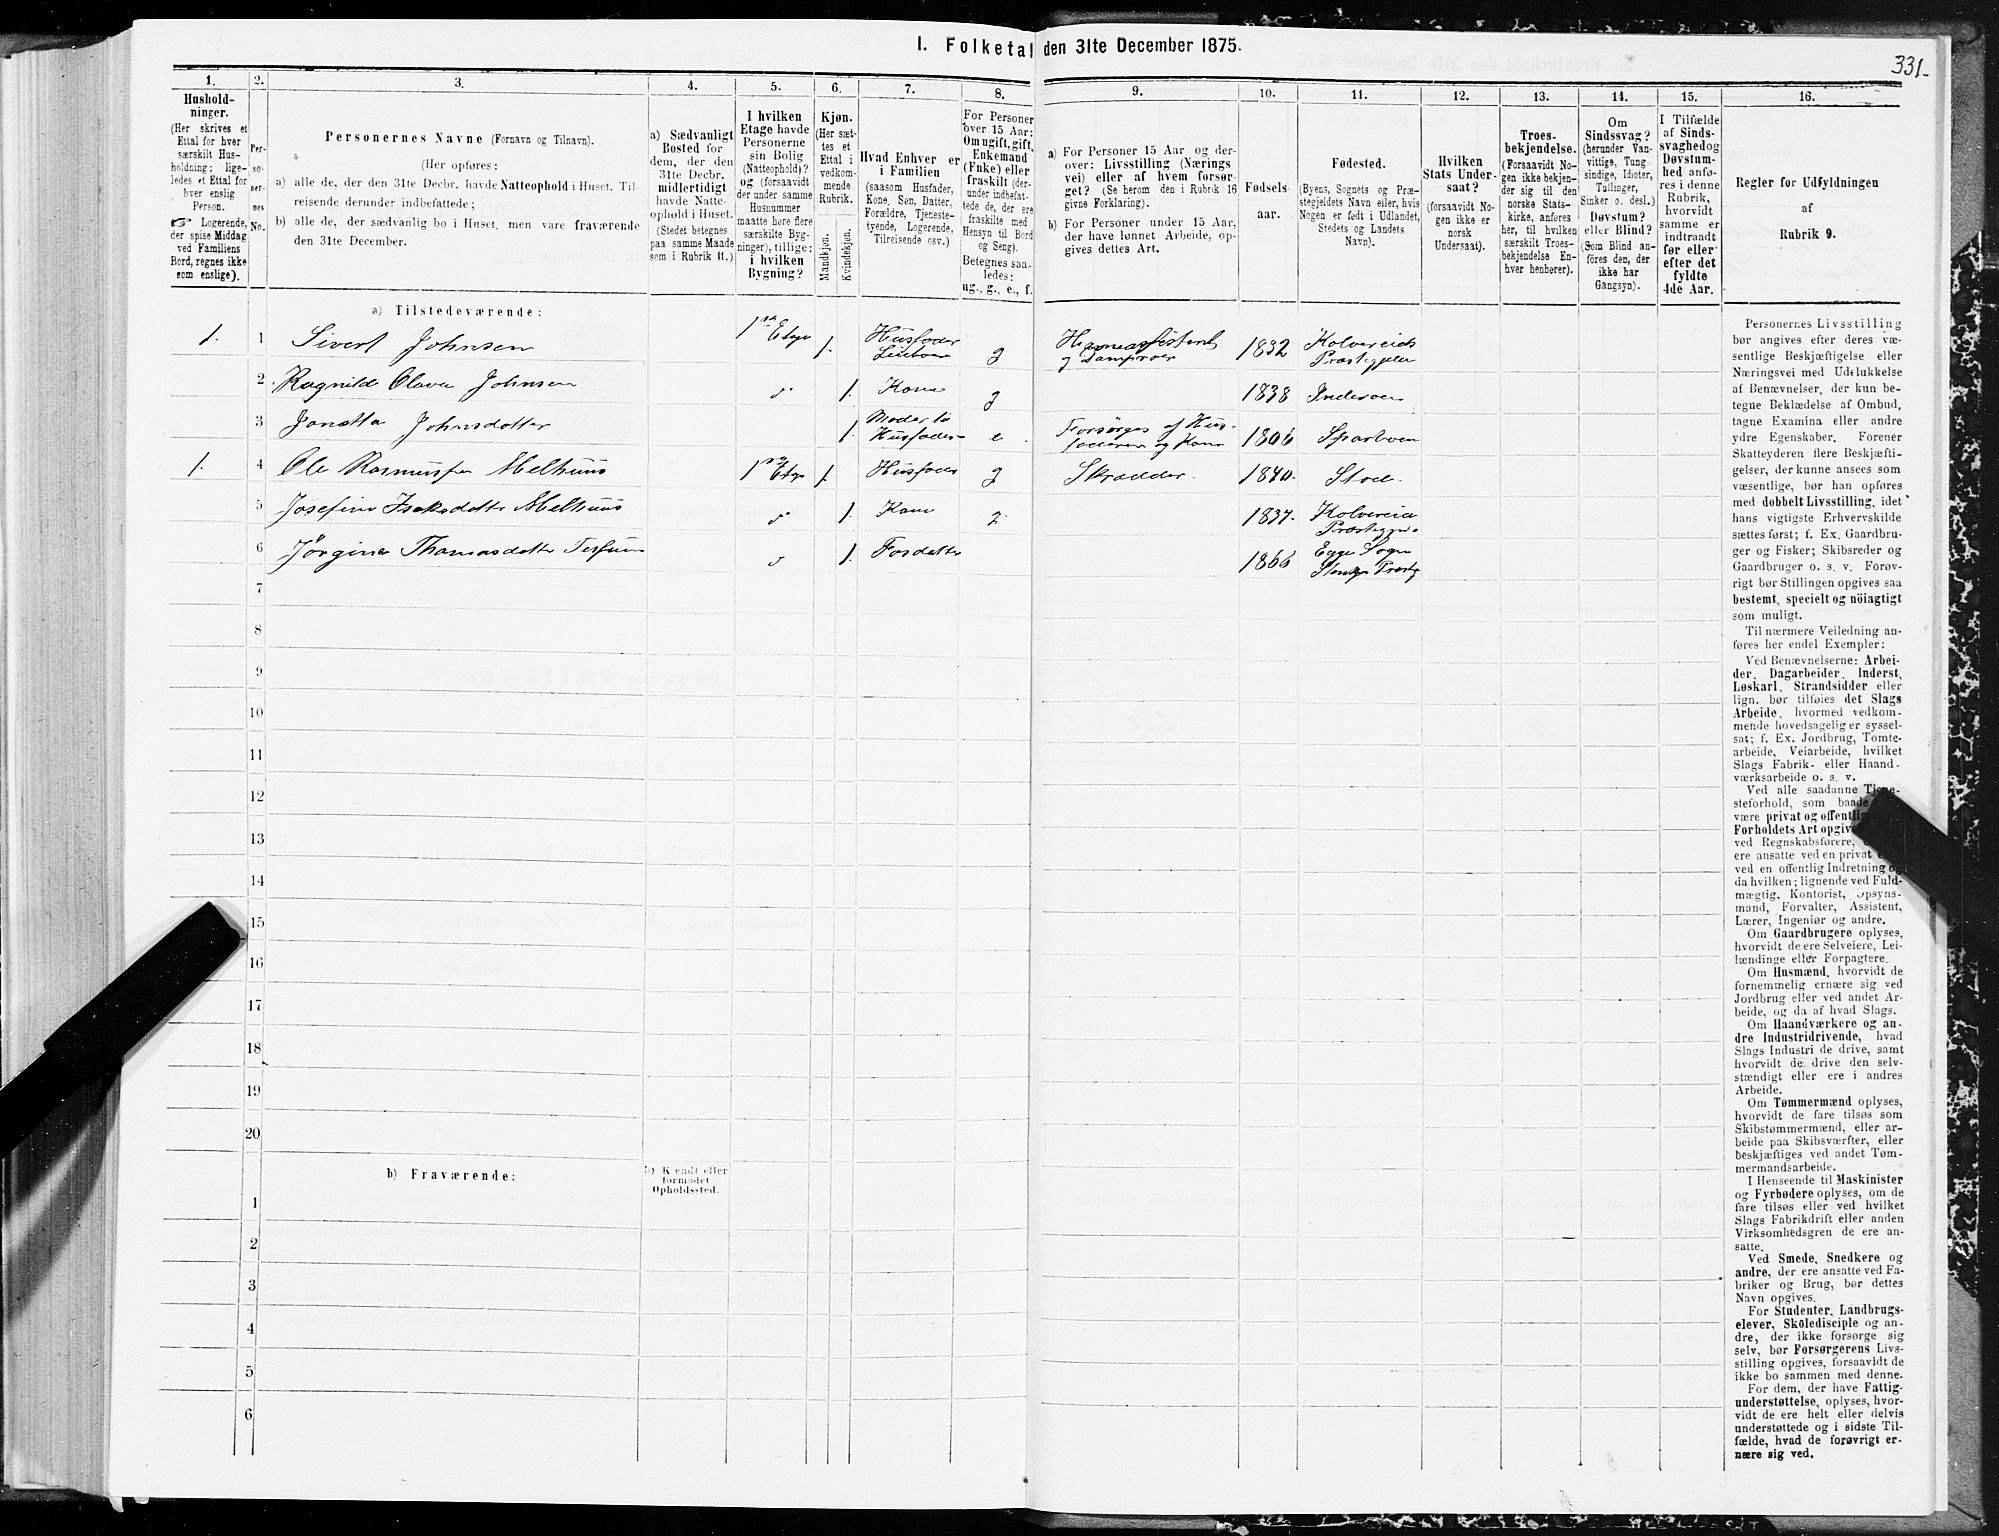 I. Folketal den 31te December 1875.
331.
1.
2.
3.
4.
5.
6.
7.
8.
9.
10.
11.
12.
13.
14.
15.
16.
Hushold-
ninger.
(Her skrives et
Ettal for hver
særskilt Hus-
holdning; lige-
ledes et Ettal for
hver enslig
Person.
☞ Logerende,
der spise Middag
ved Familiens
Bord, regnes ikke
som enslige).
Per-
so-
ner-
nes
No.
Personernes Navne (Fornavn og Tilnavn).
(Her opføres:
a) alle de, der den 31te Decbr. havde Natteophold i Huset, Til-
reisende derunder indbefattede;
b) alle de, der sædvanlig bo i Huset, men vare fraværende
den 31te December.
a) Sædvanligt
Bosted for
dem, der den
31te Decbr.
midlertidigt
havde Natte-
ophold i Huset.
(Stedet betegnes
paa samme Maade
som i Rubrik 11.)
I hvilken
Etage havde
Personerne
sin Bolig
(Natteophold)?
og (forsaavidt
der under samme
Husnummer
maatte høre flere
særskilte Byg-
ninger), tillige:
i hvilken
Bygning?
Kjøn.
(Her sæt-
tes et
Ettal i
vedkom-
mende
Rubrik.
Mandkjøn.
Kvindekjøn.
Hvad Enhver er
i Familien
(saasom Husfader,
Kone, Søn, Datter,
Forældre, Tjeneste-
tyende, Logerende,
Tilreisende osv.)
For Personer
over 15 Aar:
Om ugift, gift,
Enkemand
(Enke) eller
fraskilt (der-
under indbefat-
tede de, der ere
fraskilte med
Hensyn til Bord
og Seng).
Betegnes saa-
ledes:
ug., g., e., f.
a) For Personer 15 Aar og der-
over: Livsstilling (Nærings
vei) eller af hvem forsør-
get? (Se herom den i Rubrik 16
givne Forklaring).
b) For Personer under 15 Aar,
der have lønnet Arbeide, op-
gives dettes Art.
Fødsels-
aar.
Fødested.
(Byens, Sognets og Præ-
stegjeldets Navn eller, hvis
Nogen er født i Udlandet,
Stedets og Landets
Navn).
Hvilken
Stats Under-
saat?
(forsaavidt No-
gen ikke er
norsk
Undersaat).
Troes-
bekjendelse.
(Forsaavidt No-
gen ikke bekjen-
der sig til den
norske Stats-
kirke, anføres
her, til hvilken
særskilt Troes-
bekjendelse En-
hver henhører).
Om
Sindssvag?
(herunder Van-
vittige, Tung
sindige, Idioter,
Tullinger,
Sinker o. desl.)
Døvstum?
eller Blind?
(Som Blind an-
føres den, der
ikke har
Gangsyn).
I Tilfælde
af Sinds-
svaghed og
Døvstum-
hed anfø-
res i denne
Rubrik,
hvorvidt
samme er
indtraadt
før eller
efter det
fyldte
4de Aar.
Regler for Udfyldningen
af
Rubrik 9.
a) Tilstedeværende:
1. 1 Sivert Johnsen 1ste Etage 1. Husfader g Havneassistent 1832 Kolvereids
og Præstegjeld
2 Ragnild Olava Johnsen 1. Kone g 1838 Inderøen
3 Janetta Johnsdatter 1. Moder til e. Forsørges af Hus- 1806 Sparboen
Husfader faderen og Kone
1. 4 Ole Rasmussen Melhuus 1ste Etage 1. Husfader g Skrædder. 1840. Stod.
5 Josefine Isaksdatter Melhuus 1. Kone g. 1837. Kolvereid
Præstegj.
6 Jørgine Thomasdatter 1. Fosdatter 1866 Egge Sogn
7
8
9
10
11
12
13
14
15
16
17
18
19
20
b) Fraværende:
b) Kjendt eller
formodet
Opholdssted.
1
2
3
4
5
6
Personernes Livsstilling
bør angives efter deres væ-
sentlige Beskjæftigelse eller
Næringsvei med Udelukkelse
af Benævnelser, der kun be-
tegne Beklædelse af Ombud,
tagne Examina eller andre
ydre Egenskaber. Forener
Skatteyderen flere Beskjæfti-
gelser, der kunne ansees som
væsentlige, bør han opføres
med dobbelt Livsstilling, idet
hans vigtigste Erhvervskilde
sættes først; f. Ex. Gaardbru-
ger og Fisker; Skibsreder og
Gaardbruger o. s. v. Forøv-
rigt bør Stillingen opgives saa
bestemt, specielt og nöiagtigt
som muligt.
Til nærmere Veiledning an-
føres her endel Exempler:
Ved Benævnelserne: Arbei-
der, Dagarbeider, Inderst,
Løskarl, Strandsidder eller
lign. bør tilføies det Slags
Arbeide, hvormed vedkom-
mende hovedsagelig er syssel-
sat; f. Ex. Jordbrug, Tomte-
arbeide, Veiarbeide, hvilket
Slags Fabrik- eller Haand-
værksarbeide o. s. v.
Ved alle saadanne Tjene-
steforhold, som baade
være privat og offentlig
Forholdets Art opgives
ved Regnskabsførere,
ere ansatte ved en privat
ved en offentlig Indretning og
da hvilken; lignende ved Fuld-
mægtig, Kontorist, Opsyns-
mand, Forvalter, Assistent,
Lærer, Ingeniør og andre.
Om Gaardbrugere oplyses,
hvorvidt de ere Selveiere, Lei-
lændinge eller Forpagtere.
Om Husmænd, hvorvidt de
fornemmelig ernære sig ved
Jordbrug eller ved andet Ar-
beide, og da af hvad Slags.
Om Haandværkere og an-
dre Industridrivende, hvad
Slags Industri de drive, samt
hvorvidt de drive den selv-
stændigt eller ere i andres
Arbeide.
Om Tømmermænd oplyses,
hvorvidt de fare tilsøs som
Skibstømmermænd, eller ar-
beide paa Skibsværfter, eller
beskjæftiges ved andet Tøm-
mermandsarbeide.
I Henseende til Maskinister
og Fyrbødere oplyses, om de
fare tilsøs eller ved hvilket
Slags Fabrikdrift eller anden
Virksomhedsgren de ere an-
satte.
Ved Smede, Snedkere og
andre, der ere ansatte ved Fa-
briker og Brug, bør dettes
Navn opgives.
For Studenter, Landbrugs-
elever, Skölediscíple og an-
dre, der ikke forsørge sig
selv, bør Forsørgerens Livs-
stilling opgives, forsaavidt de
ikke bo sammen med denne.
For dem, der have Fattig-
understøttelse, oplyses, hvor-
vidt de ere helt eller delvis
understøttede og i sidste Til-
fælde, hvad de forøvrigt er-
nære sig ved.